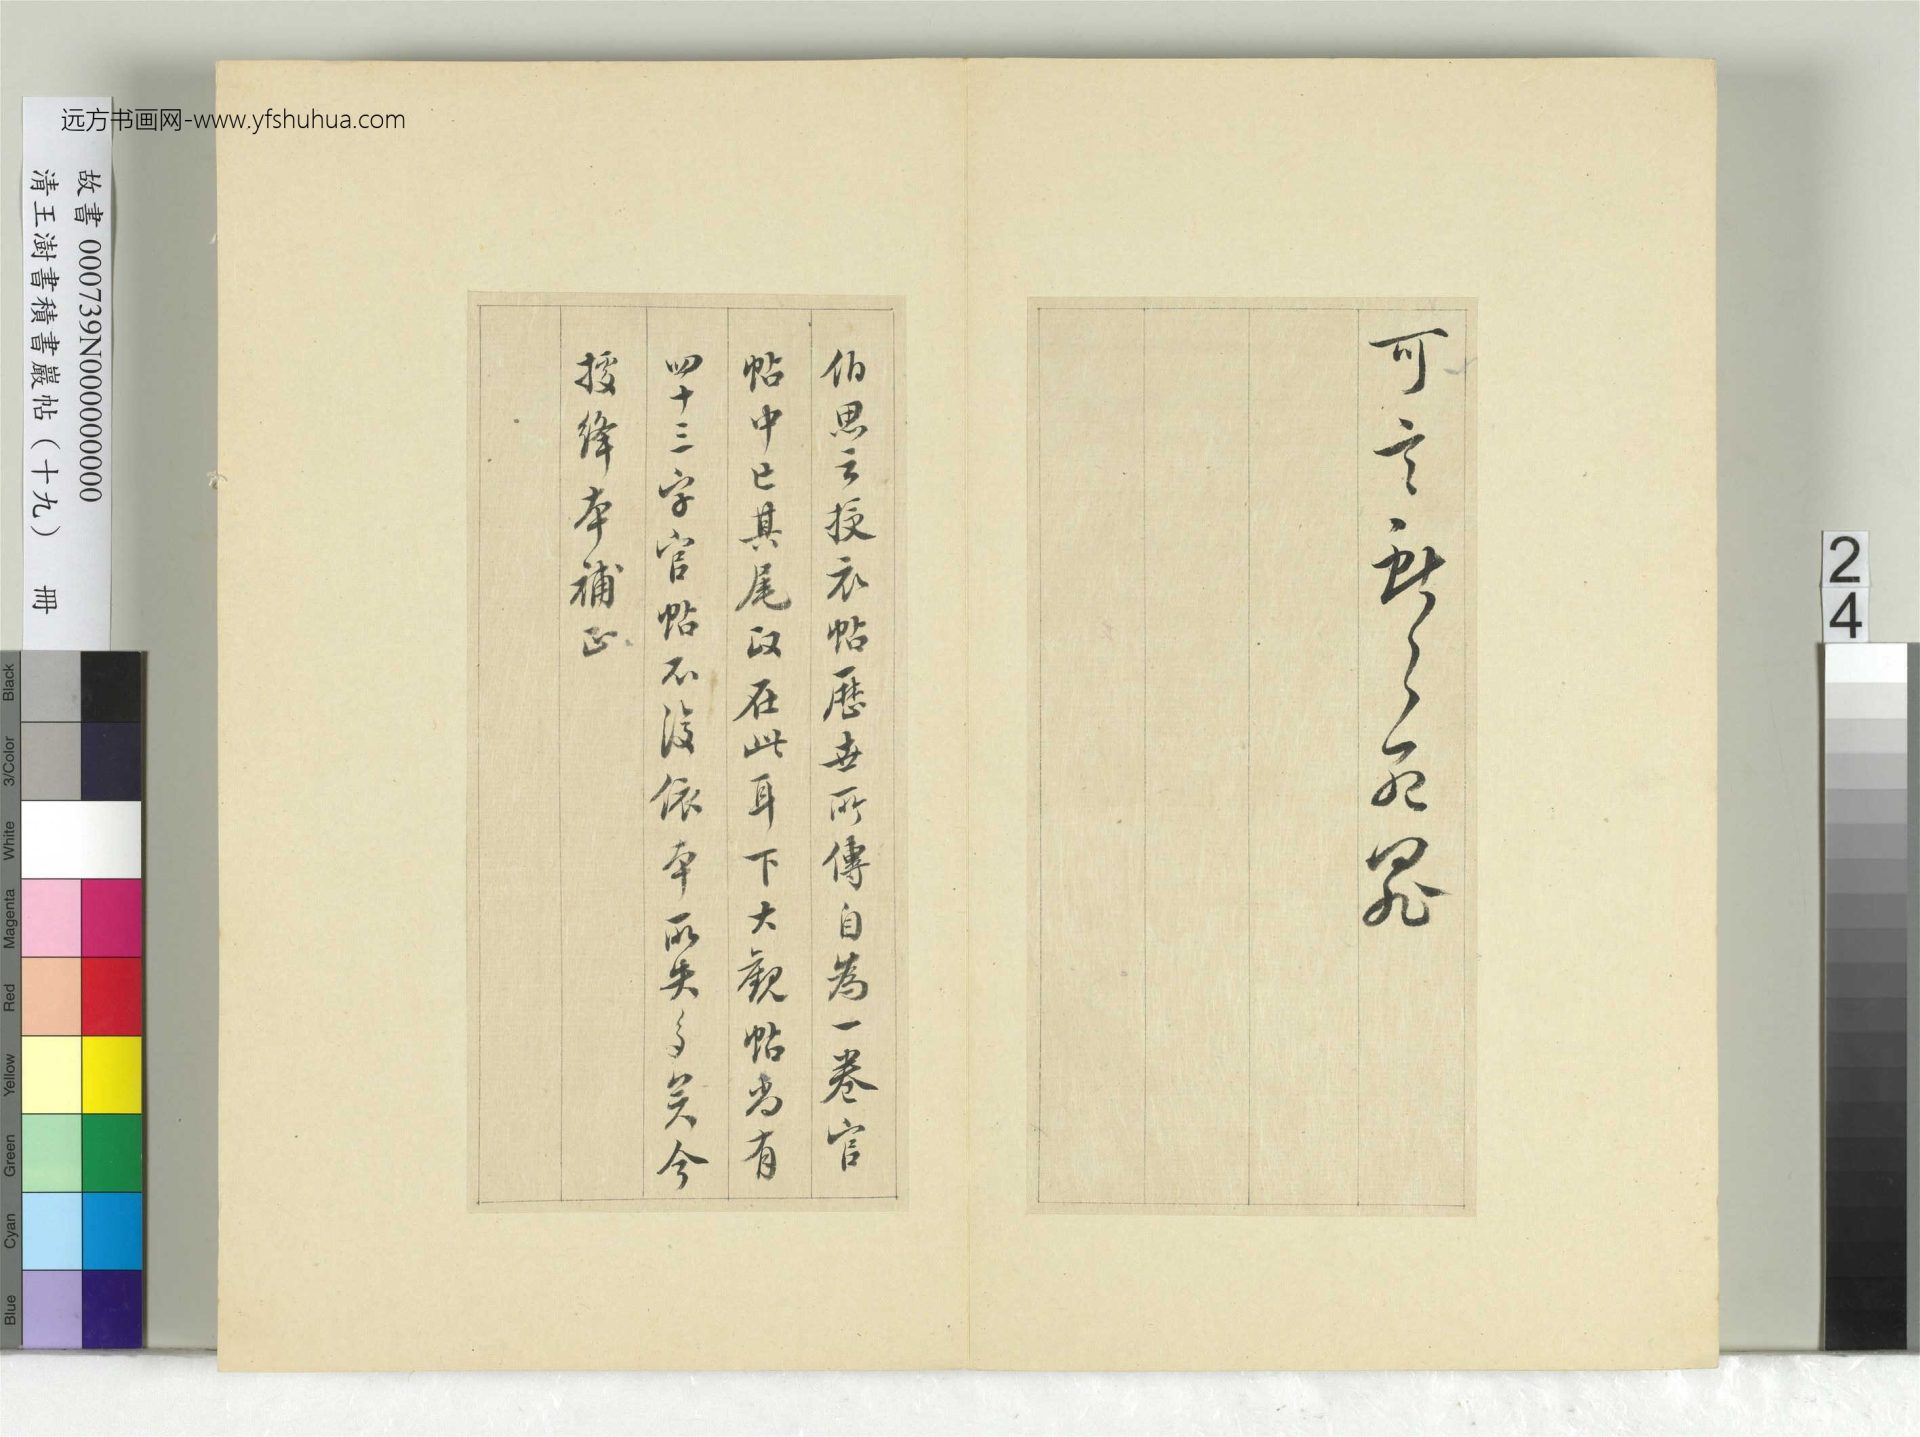 远方书画网-www.yfshuhua.com
故書 000739N000000000
清王澍書積書巖帖（十九） 冊
可言
伯思云授衣帖歷世所傳自為一卷官
帖中已其尾改在此耳下大觀帖尚有
四十三字官帖不復依本所失多矣今
援絳本補正
24
Black
3/Color
White
Magenta
Red
Yellow
Green
Cyan
Blue